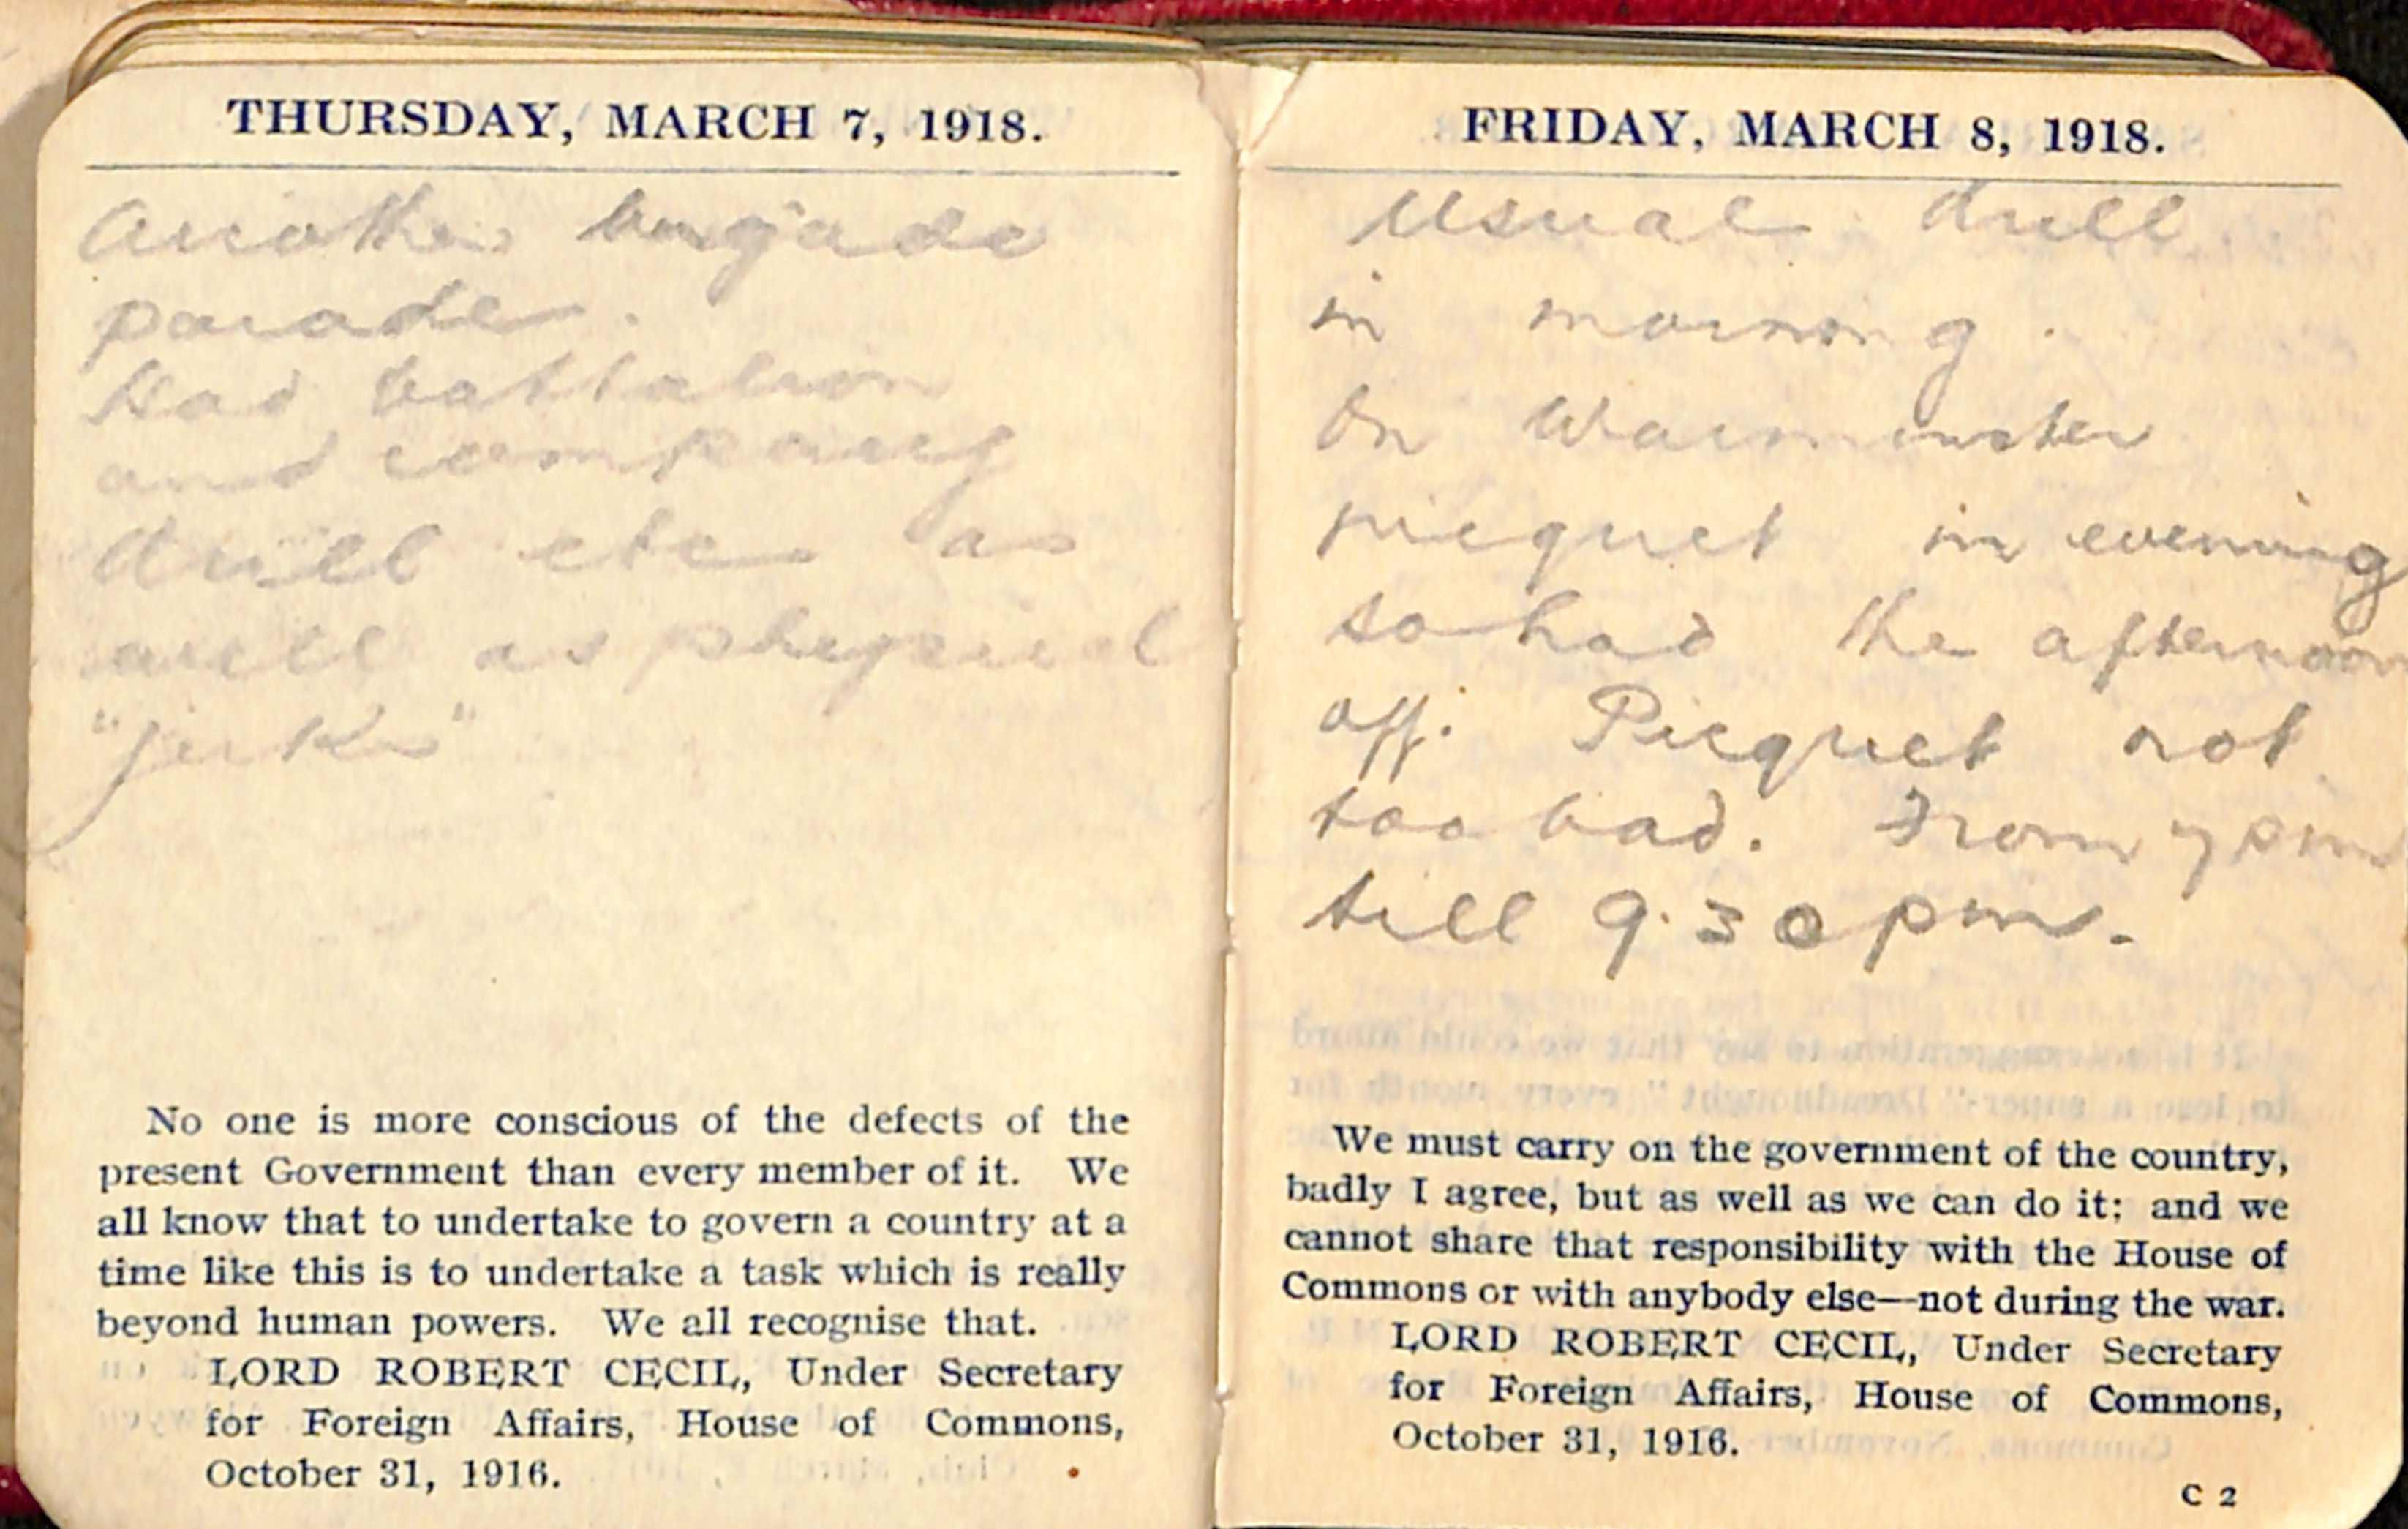 THURSDAY, MARCH 7, 1918.
Another brigade
parade.
Had battalion
and company
drill etc as
well as physical
"jerks"
No one is more conscious of the defects of the
present Government than every member of it. We
all know that to undertake to govern a country at a
time like this is to undertake a task which is really
beyond human powers. We all recognise that.
LORD ROBERT CECIL, Under Secretary
for Foreign Affairs, House of Commons,
October 31, 1916.
FRIDAY, MARCH 8, 1918.
Usual drill
in morning.
On Warminster
picquet in evening
so had the afternoon
off. Picquet not
too bad. From 7 pm
till 9.30 pm.
We must carry on the government of the country,
badly I agree, but as well as we can do it; and we
cannot share that responsibility with the House of
Commons or with anybody else—not during the war.
LORD ROBERT CECIL, Under Secretary
for Foreign Affairs, House of Commons,
October 31, 1916.
C 2